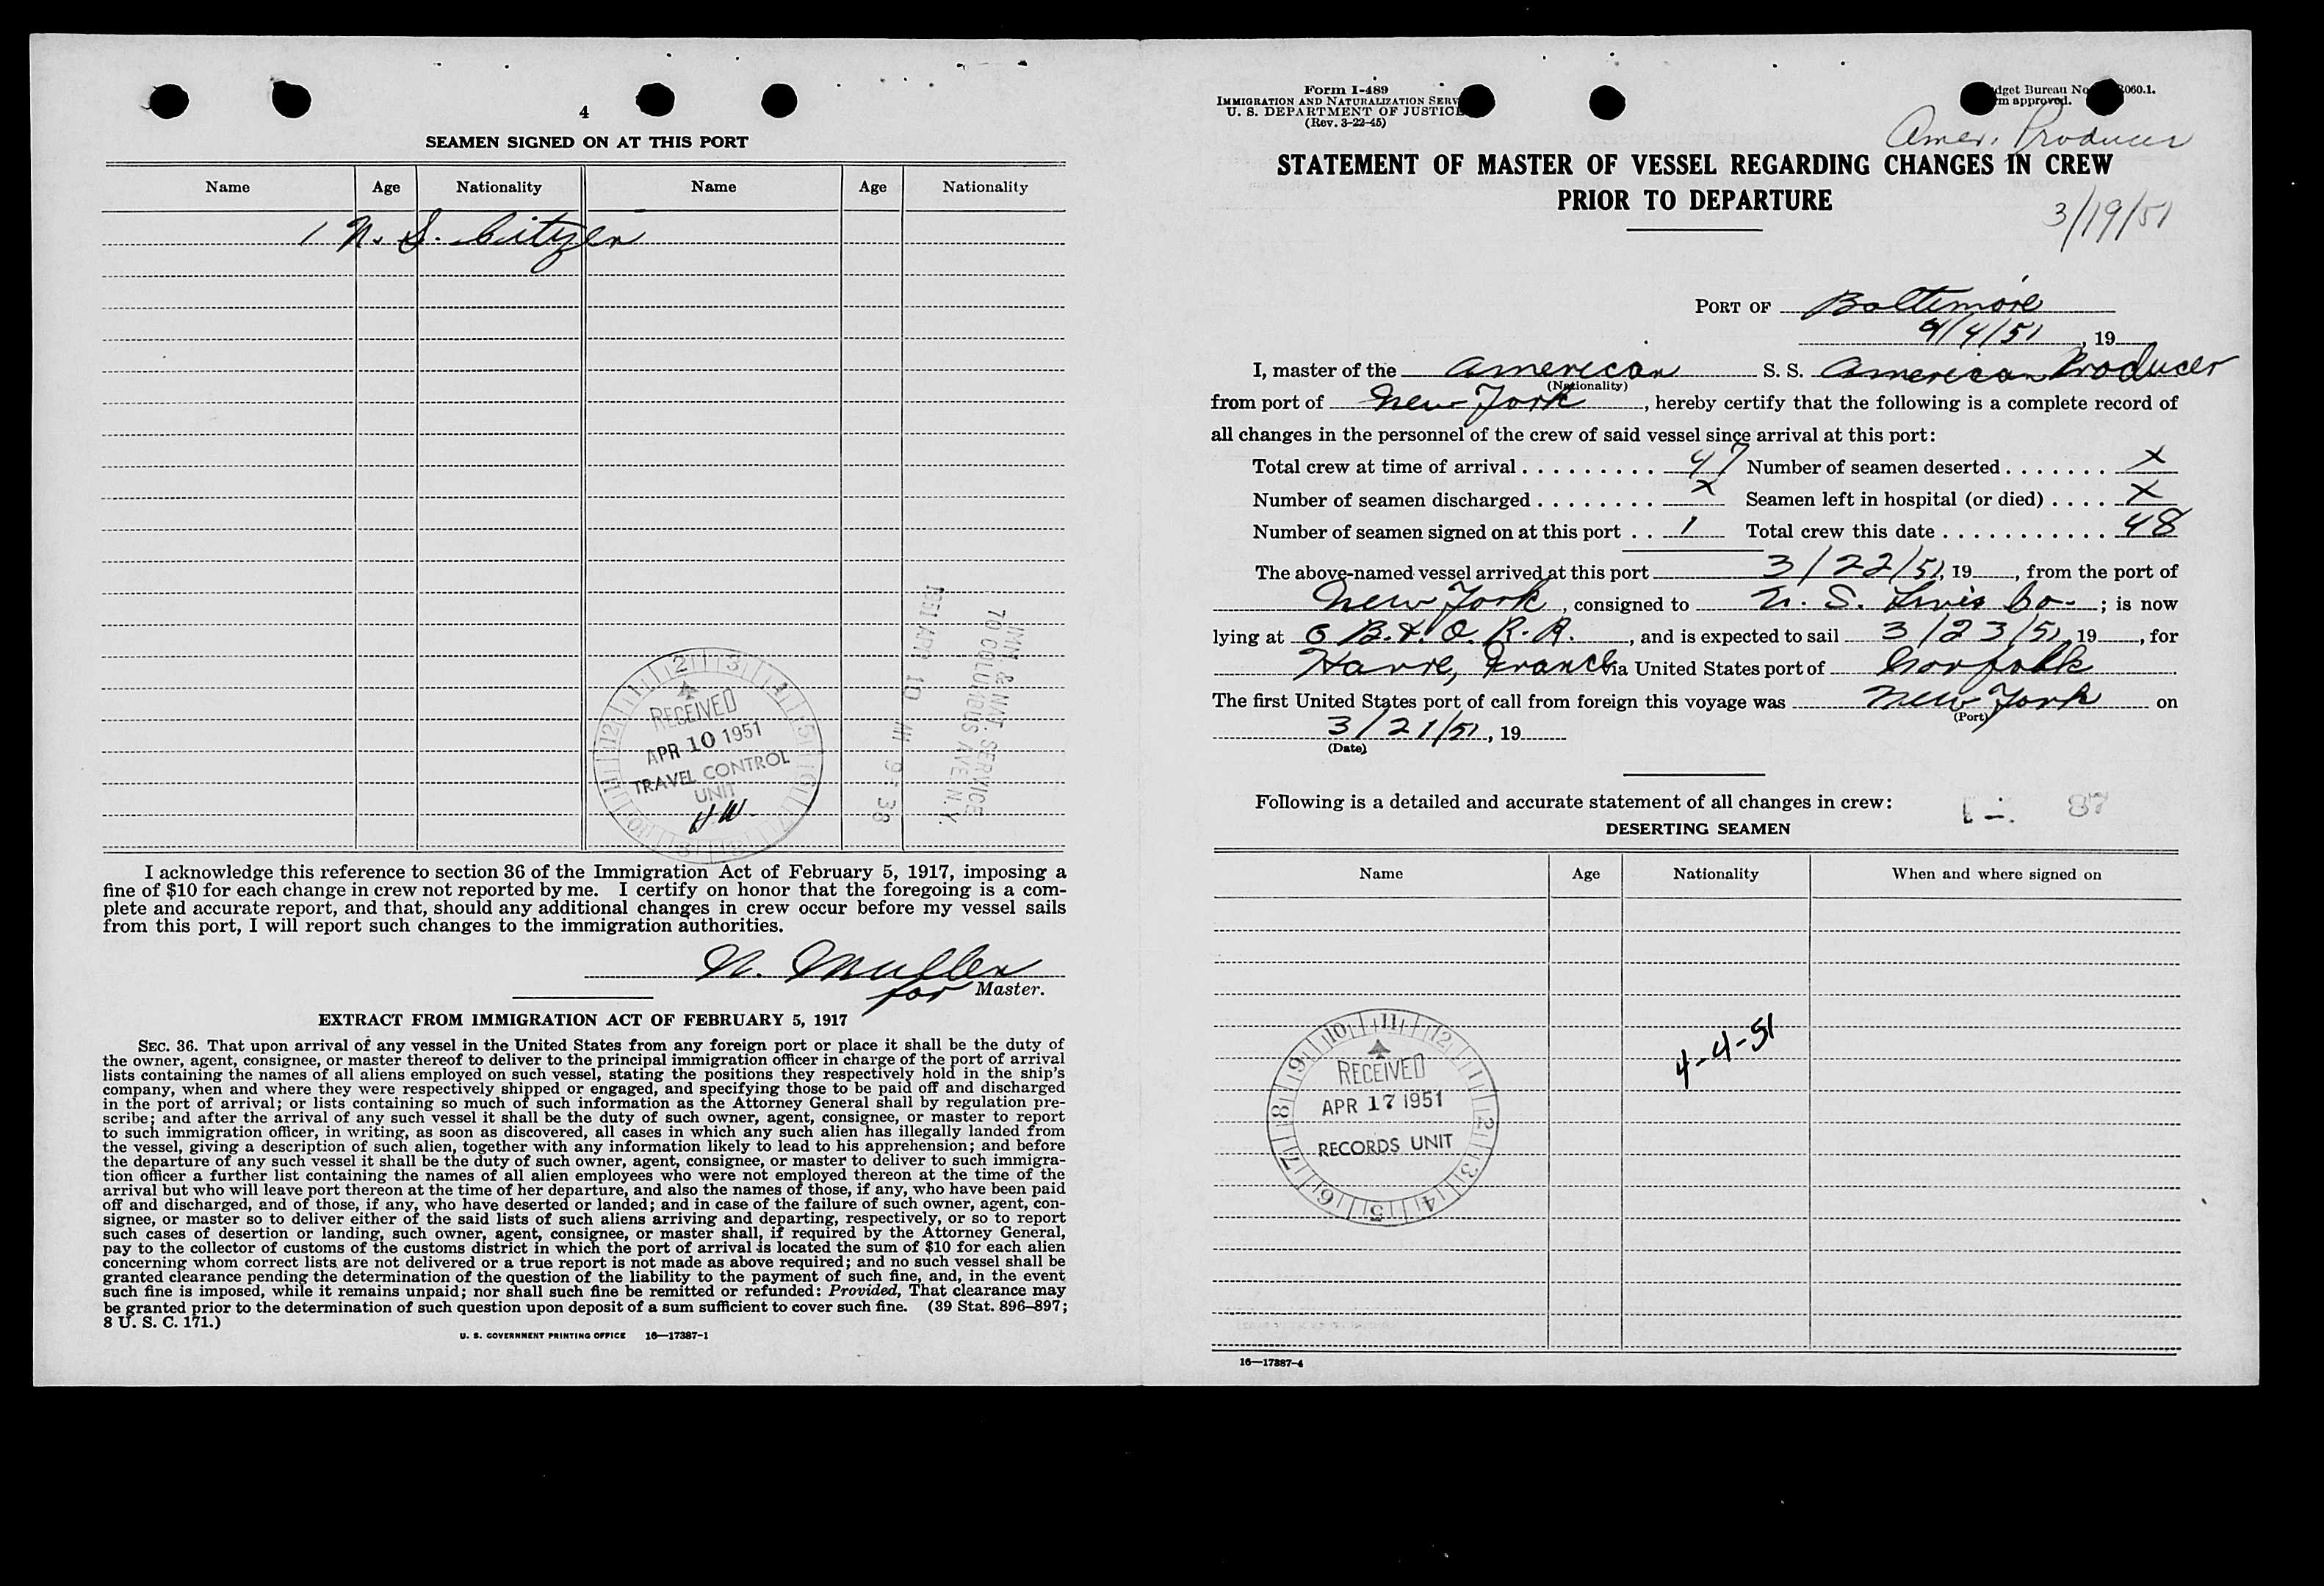 4
SEAMEN SIGNED ON AT THIS PORT
Name Age Nationality Name Age Nationality
1 U. S. Citizen
IMM. & NAT. SERVICE
70 COLUMBUS AVE N.Y.
1951 APR 10 AM 9 38
RECEIVED
APR 10 1951
TRAVEL CONTROL
UNIT
I acknowledge this reference to section 36 of the Immigration Act of February 5, 1917, imposing a
fine of $10 for each change in crew not reported by me. I certify on honor that the foregoing is a com-
plete and accurate report, and that, should any additional changes in crew occur before my vessel sails
from this port, I will report such changes to the immigration authorities.
N. Muller
for Master.
EXTRACT FROM IMMIGRATION ACT OF FEBRUARY 5, 1917
SEC. 36. That upon arrival of any vessel in the United States from any foreign port or place it shall be the duty of
the owner, agent, consignee, or master thereof to deliver to the principal immigration officer in charge of the port of arrival
lists containing the names of all aliens employed on such vessel, stating the positions they respectively hold in the ship's
company, when and where they were respectively shipped or engaged, and specifying those to be paid off and discharged
in the port of arrival; or lists containing so much of such information as the Attorney General shall by regulation pre-
scribe; and after the arrival of any such vessel it shall be the duty of such owner, agent, consignee, or master to report
to such immigration officer, in writing, as soon as discovered, all cases in which any such alien has illegally landed from
the vessel, giving a description of such alien, together with any information likely to lead to his apprehension; and before
the departure of any such vessel it shall be the duty of such owner, agent, consignee, or master to deliver to such immigra-
tion officer a further list containing the names of all alien employees who were not employed thereon at the time of the
arrival but who will leave port thereon at the time of her departure, and also the names of those, if any, who have been paid
off and discharged, and of those, if any, who have deserted or landed; and in case of the failure of such owner, agent, con-
signee, or master so to deliver either of the said lists of such aliens arriving and departing, respectively, or so to report
such cases of desertion or landing, such owner, agent, consignee, or master shall, if required by the Attorney General,
pay to the collector of customs of the customs district in which the port of arrival is located the sum of $10 for each alien
concerning whom correct lists are not delivered or a true report is not made as above required; and no such vessel shall be
granted clearance pending the determination of the question of the liability to the payment of such fine, and, in the event
such fine is imposed, while it remains unpaid; nor shall such fine be remitted or refunded: Provided, That clearance may
be granted prior to the determination of such question upon deposit of a sum sufficient to cover such fine. (39 Stat. 896–897;
8 U. S. C. 171.)
U. S. GOVERNMENT PRINTING OFFICE 16—17387-1
Form I-489
IMMIGRATION AND NATURALIZATION SERV
U. S. DEPARTMENT OF JUSTICE
(Rev. 3-22-45)
dget Bureau No 060.1.
m approved.
Amer. Producer
STATEMENT OF MASTER OF VESSEL REGARDING CHANGES IN CREW
PRIOR TO DEPARTURE
3/19/51
PORT OF Baltimore
4/4/51, 19
I, master of the American S. S. American Producer
(Nationality)
from port of New York, hereby certify that the following is a complete record of
all changes in the personnel of the crew of said vessel since arrival at this port:
Total crew at time of arrival . . . . . . . . . 47 Number of seamen deserted . . . . . . . X
Number of seamen discharged . . . . . . . . X Seamen left in hospital (or died) . . . . X
Number of seamen signed on at this port . . 1 Total crew this date . . . . . . . . . . . 48
The above-named vessel arrived at this port 3/22/51, 19, from the port of
New York, consigned to U. S. Lines Co. ; is now
lying at 6 B. & O. R. R., and is expected to sail 3/23/51, 19, for
Havre, France via United States port of Norfolk
The first United States port of call from foreign this voyage was New York on
(Port)
3/21/51, 19
(Date)
Following is a detailed and accurate statement of all changes in crew: 87
DESERTING SEAMEN
Name Age Nationality When and where signed on
4-4-51
RECEIVED
APR 17 1951
RECORDS UNIT
16—17387-4